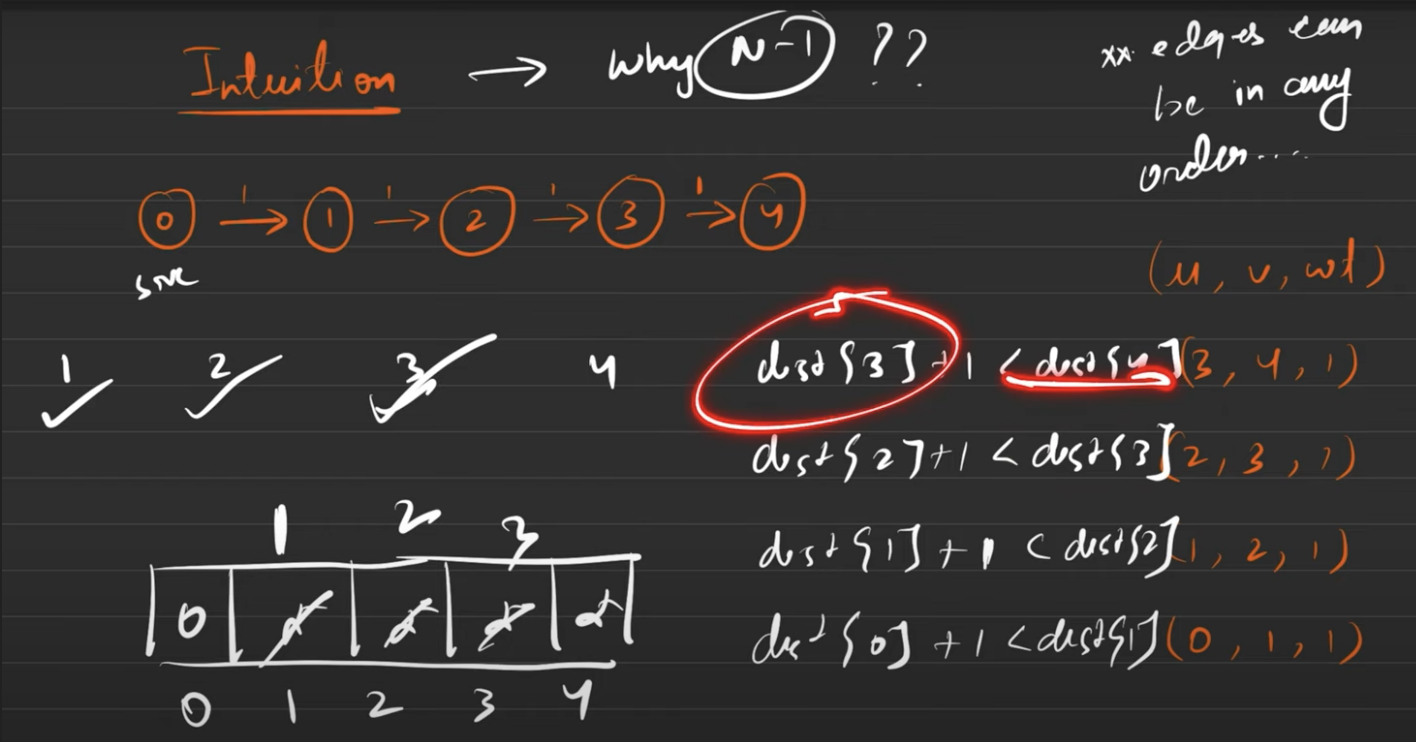 Intuition → Why N-1 ??
** edges can
be in any
order....
1 1 1 1
0 → 1 → 2 → 3 → 4
src
(u, v, wt)
1 2 3 4
dist[3] + 1 < dist[4] (3, 4, 1)
dist[2] + 1 < dist[3] (2, 3, 1)
dist[1] + 1 < dist[2] (1, 2, 1)
dist[0] + 1 < dist[1] (0, 1, 1)
1 2 3
0 ∞ ∞ ∞ ∞
0 1 2 3 4